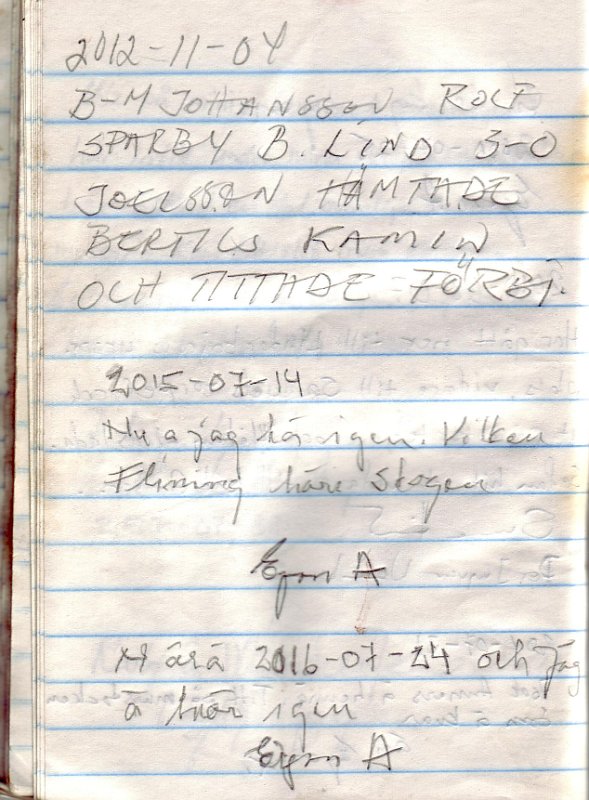 2012-11-04
B-M JOHANSSON ROLF
SPARBY B. LIND S-O
JOELSSON HÄMTADE
BERTILS KAMIN
OCH TITTADE FÖRBI.
2015-07-14
Nu a jag här igen. Vilken
i Skogen
Egon A
ärä 2016-07-24 och jag
ä här igen
Egon A